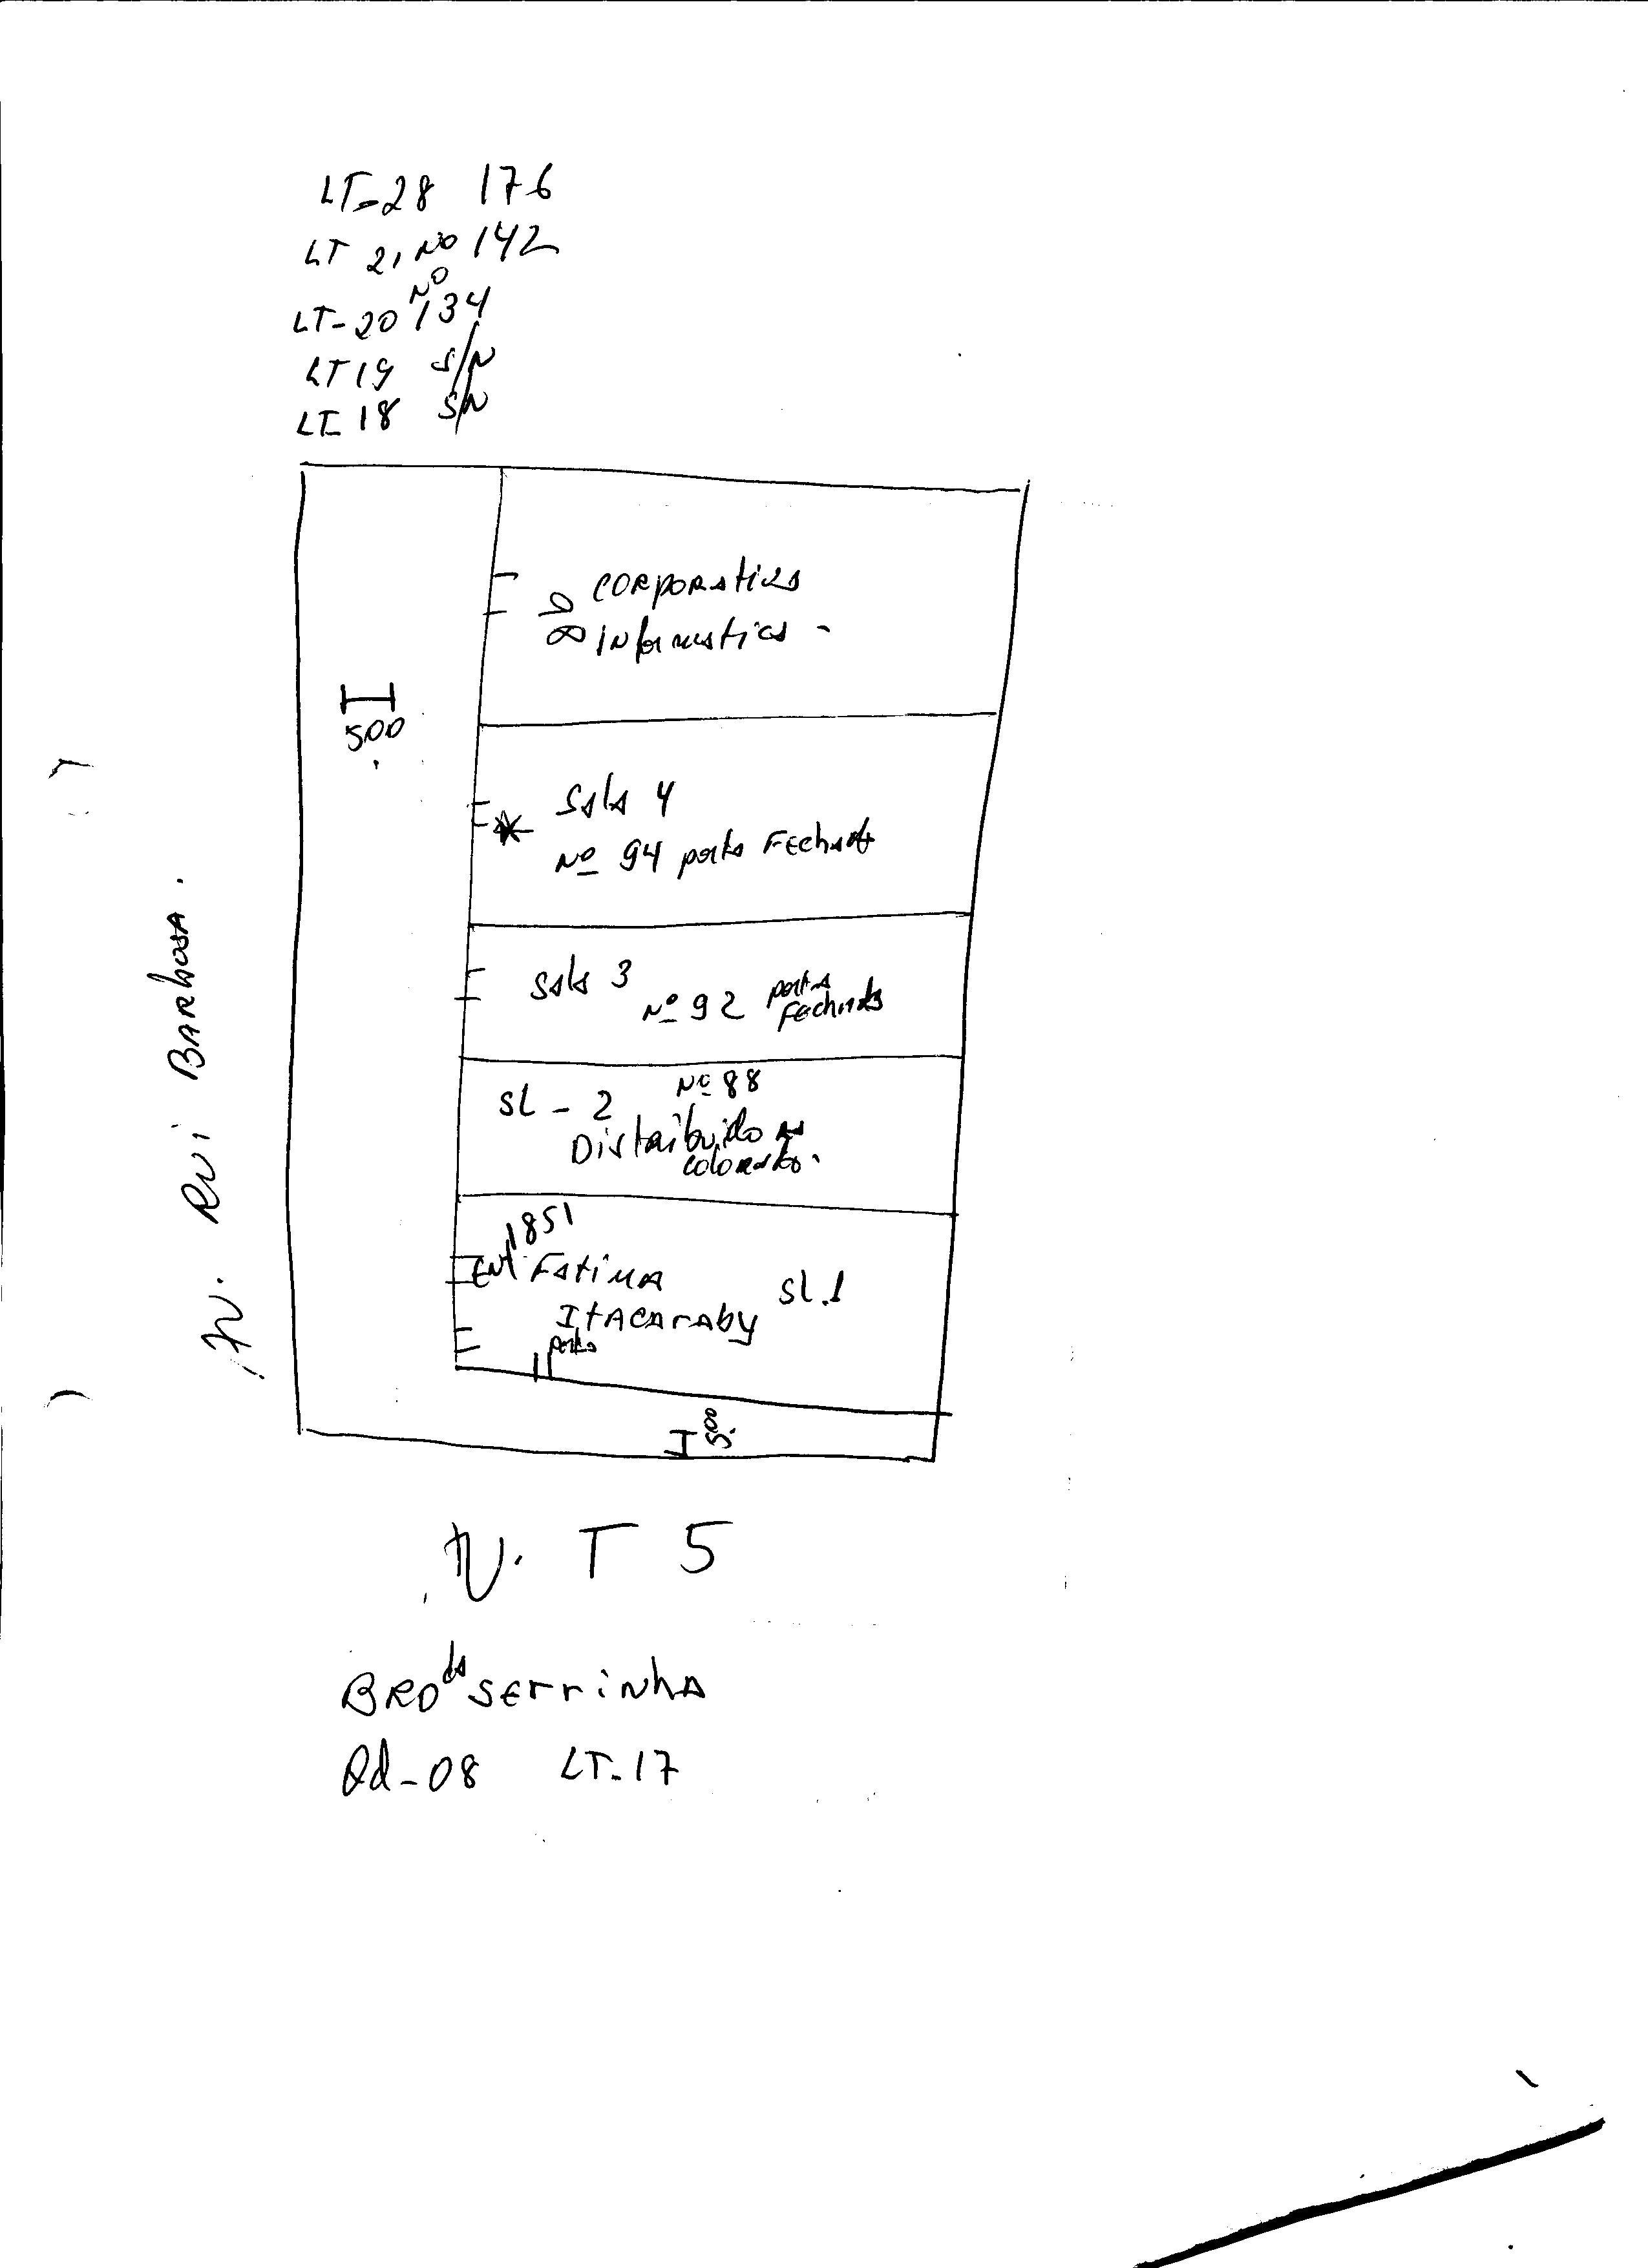 LT-28 176
LT 21 Nº 142
LT-20 Nº 134
LT 19 S/N
LT 18 S/N
CORPORATIVA
98 INFORMATICA
500
Sala 4
Nº 94 porta FEchada
Sala 3
Nº 92 porta FEchada
SL - 2 Nº 88
Distribuidora
colorado
1851
Ent FATIMA
ItACARAby SL.1
porta
500
AV. Rui BARbosA.
AV. T 5
BRO da SErrinhA
Qd-08 LT-17